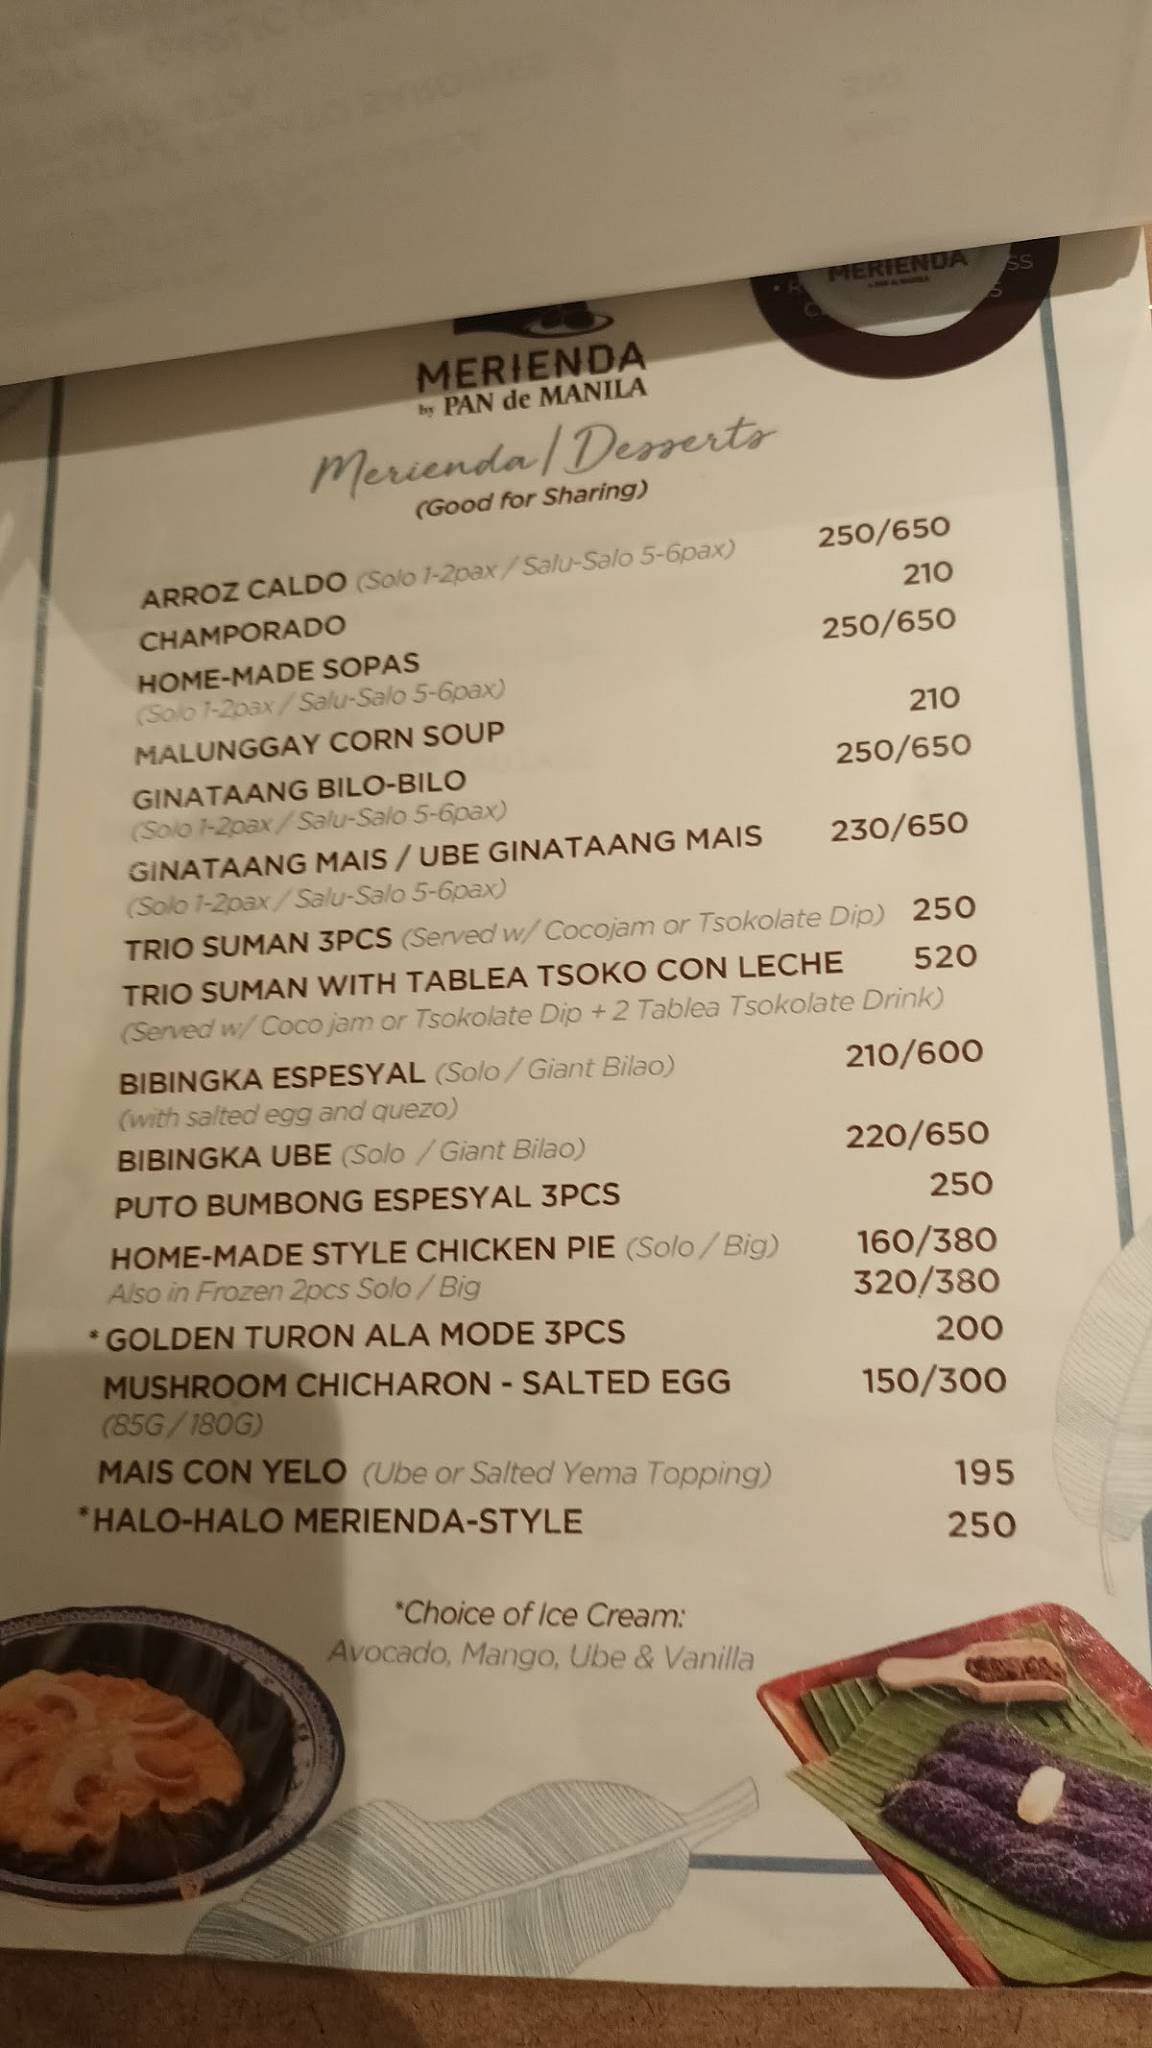 MERIENDA
SS
MERIENDA
by PAN de MANILA
Merienda/Desserts
(Good for Sharing)
ARROZ CALDO (Solo 1-2pax / Salu-Salo 5-6pax) 250/650
CHAMPORADO 210
HOME-MADE SOPAS 250/650
(Solo 1-2pax / Salu-Salo 5-6pax)
MALUNGGAY CORN SOUP 210
GINATAANG BILO-BILO 250/650
(Solo 1-2pax / Salu-Salo 5-6pax)
GINATAANG MAIS / UBE GINATAANG MAIS 230/650
(Solo 1-2pax / Salu-Salo 5-6pax)
TRIO SUMAN 3PCS (Served w/ Cocojam or Tsokolate Dip) 250
TRIO SUMAN WITH TABLEA TSOKO CON LECHE 520
(Served w/ Coco jam or Tsokolate Dip + 2 Tablea Tsokolate Drink)
BIBINGKA ESPESYAL (Solo / Giant Bilao) 210/600
(with salted egg and quezo)
BIBINGKA UBE (Solo / Giant Bilao) 220/650
PUTO BUMBONG ESPESYAL 3PCS 250
HOME-MADE STYLE CHICKEN PIE (Solo / Big) 160/380
Also in Frozen 2pcs Solo / Big 320/380
*GOLDEN TURON ALA MODE 3PCS 200
MUSHROOM CHICHARON - SALTED EGG 150/300
(85G / 180G)
MAIS CON YELO (Ube or Salted Yema Topping) 195
*HALO-HALO MERIENDA-STYLE 250
*Choice of Ice Cream:
Avocado, Mango, Ube & Vanilla